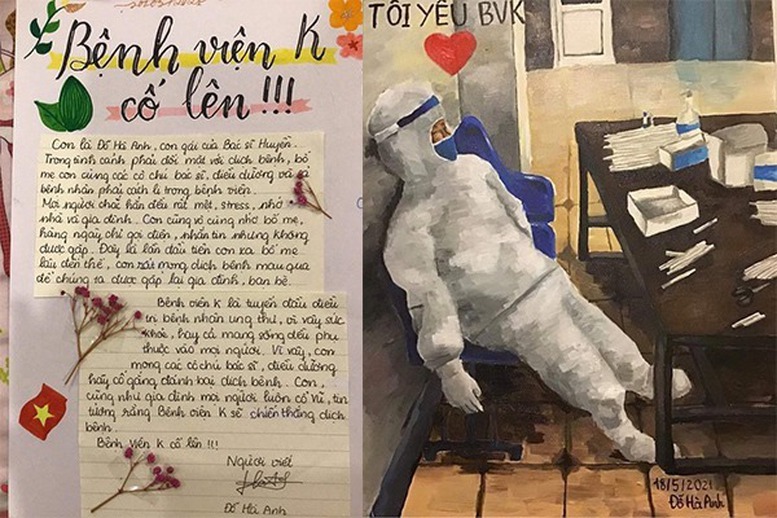 Bệnh viện K
cố lên !!!
Con là Đỗ Hà Anh, con gái của Bác sĩ Huyền.
Trong tình cảnh phải đối mặt với dịch bệnh, bố
mẹ con cùng các cô chú bác sĩ, điều dưỡng và cả
bệnh nhân phải cách li trong bệnh viện.
Mọi người chắc hẳn đều rất mệt, stress, nhớ
nhà và gia đình. Con cũng vô cùng nhớ bố mẹ,
hàng ngày chỉ gọi điện, nhắn tin nhưng không
được gặp. Đây là lần đầu tiên con xa bố mẹ
lâu đến thế, con rất mong dịch bệnh mau qua
để chúng ta được gặp lại gia đình, bạn bè.
Bệnh viện K là tuyến đầu điều
trị bệnh nhân ung thư, vì vậy sức
khỏe, hay cả mạng sống đều phụ
thuộc vào mọi người. Vì vậy, con
mong các cô chú bác sĩ, điều dưỡng
hãy cố gắng đánh bại dịch bệnh. Con,
cũng như gia đình mọi người luôn cổ vũ, tin
tưởng rằng Bệnh viện K sẽ chiến thắng dịch
bệnh.
Bệnh viện K cố lên !!!
Người viết
Đỗ Hà Anh
TÔI YÊU BVK
18/5/2021
Đỗ Hà Anh